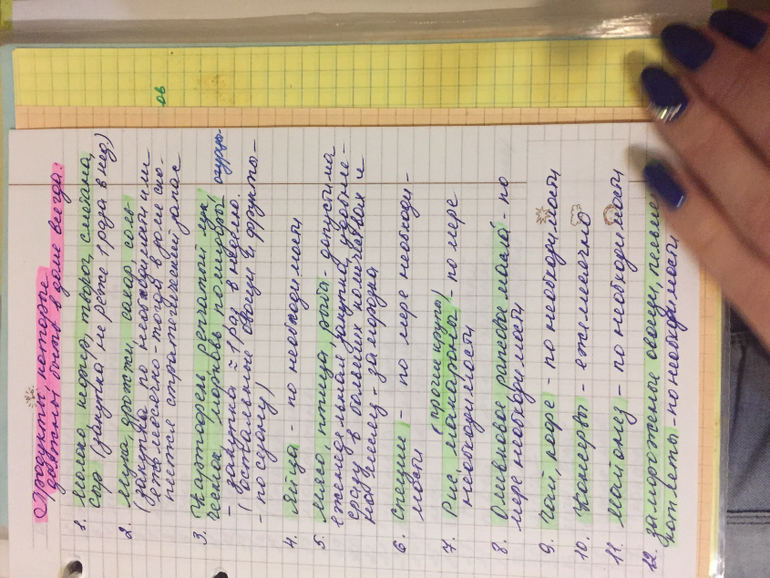 Продукты которые
должны быть в доме всегда:
1. Молоко, кефир, творог, сметана,
сыр (закупка не реже 1 раза в нед)
2. Мука, дрожжи, сахар, соль
(закупка по необходимости или
есть несколько-тогда в доме
стратегический запас
3. Картофель репчатый лук,
чеснок морковь помидоры, огурцы
- закупка = 1 раз в неделю.
(остальные овощи и фрукты-
- по сезону)
4. Яйца - по необходимости
5. Мясо, птица, рыба - допустима
еженедельная закупка, удобнее-
сразу в больших количествах и
на заморозка
6. Специи - по мере необходи-
мости
7. Рис, макароны (прочие крупы) - по мере
необходимости
8. Оливковое рапсовое масло - по
мере необходимости
9. Чай, кофе - по необходимости
10. Консервы - ежемесячно
11. Майонез - по необходимости
12. Замороженые овощи,
котлеты - по необходимости
ов